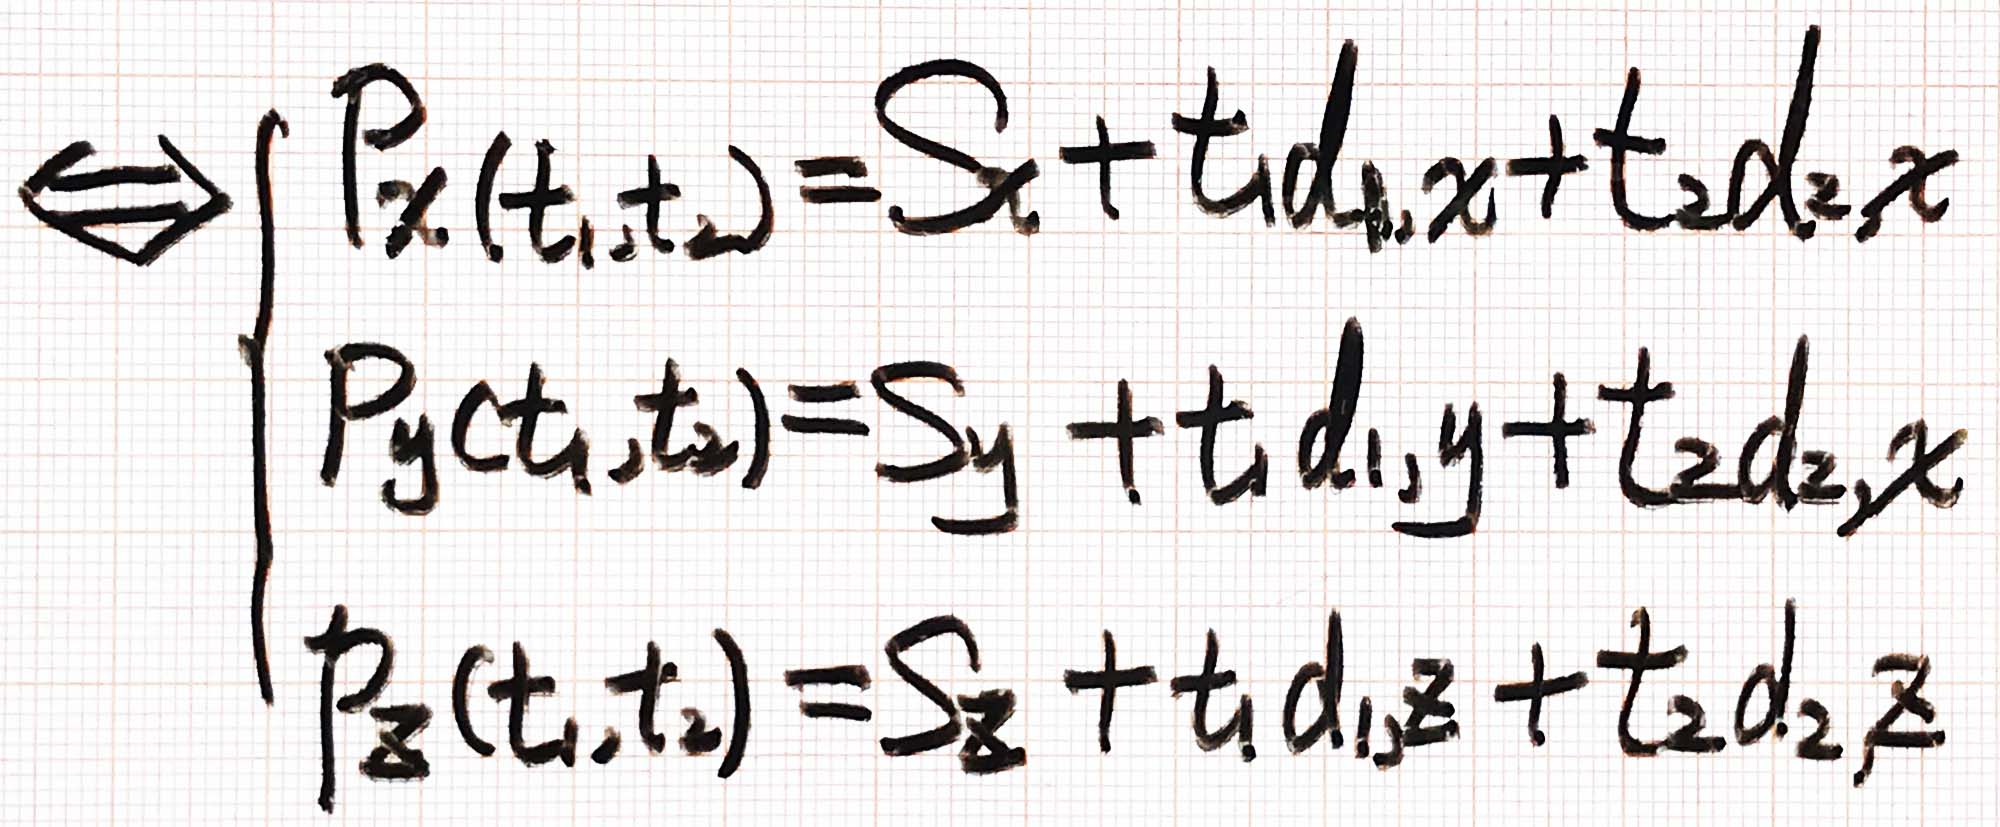 ⇔ { Px(t1,t2) = Sx + t1d1,x + t2d2,x
Py(t1,t2) = Sy + t1d1,y + t2d2,x
Pz(t1,t2) = Sz + t1d1,z + t2d2,z